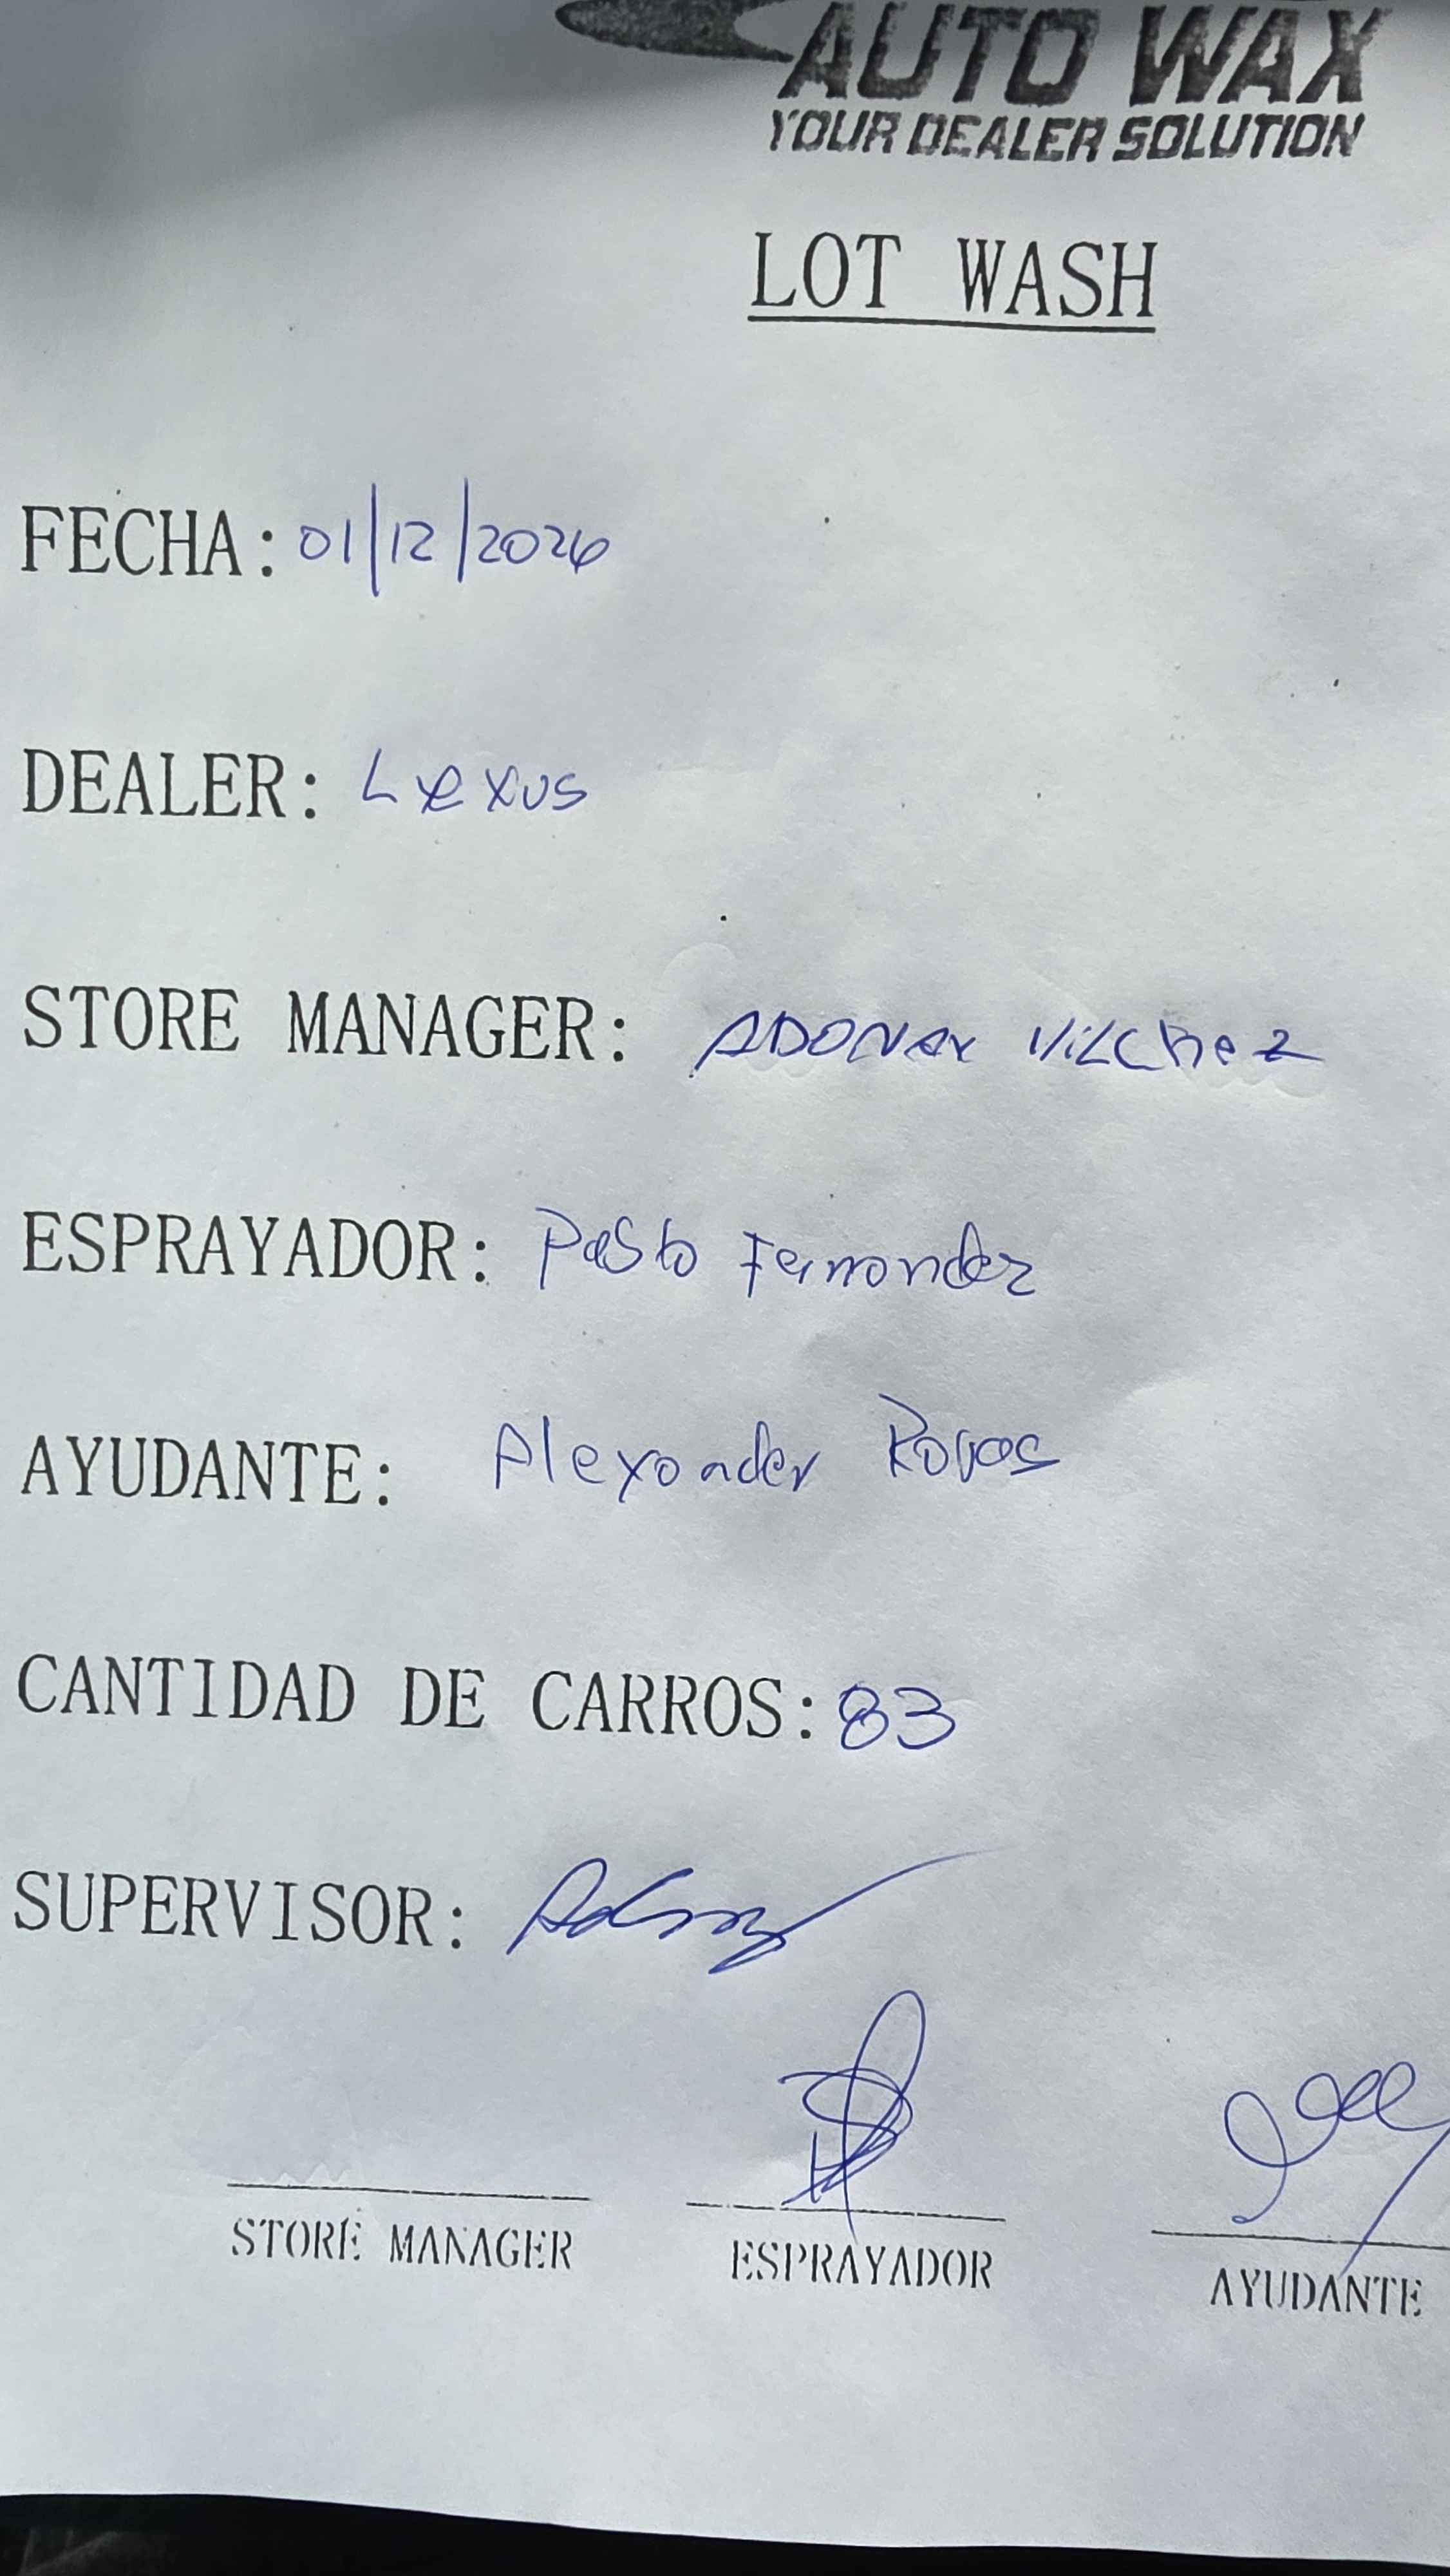 AUTO WAX
YOUR DEALER SOLUTION
LOT WASH
FECHA: 01/12/2026
DEALER: Lexus
STORE MANAGER: ADONAY VILCHEZ
ESPRAYADOR: Pablo Fernandez
AYUDANTE: Alexander Rojas
CANTIDAD DE CARROS: 83
SUPERVISOR:
STORE MANAGER ESPRAYADOR AYUDANTE